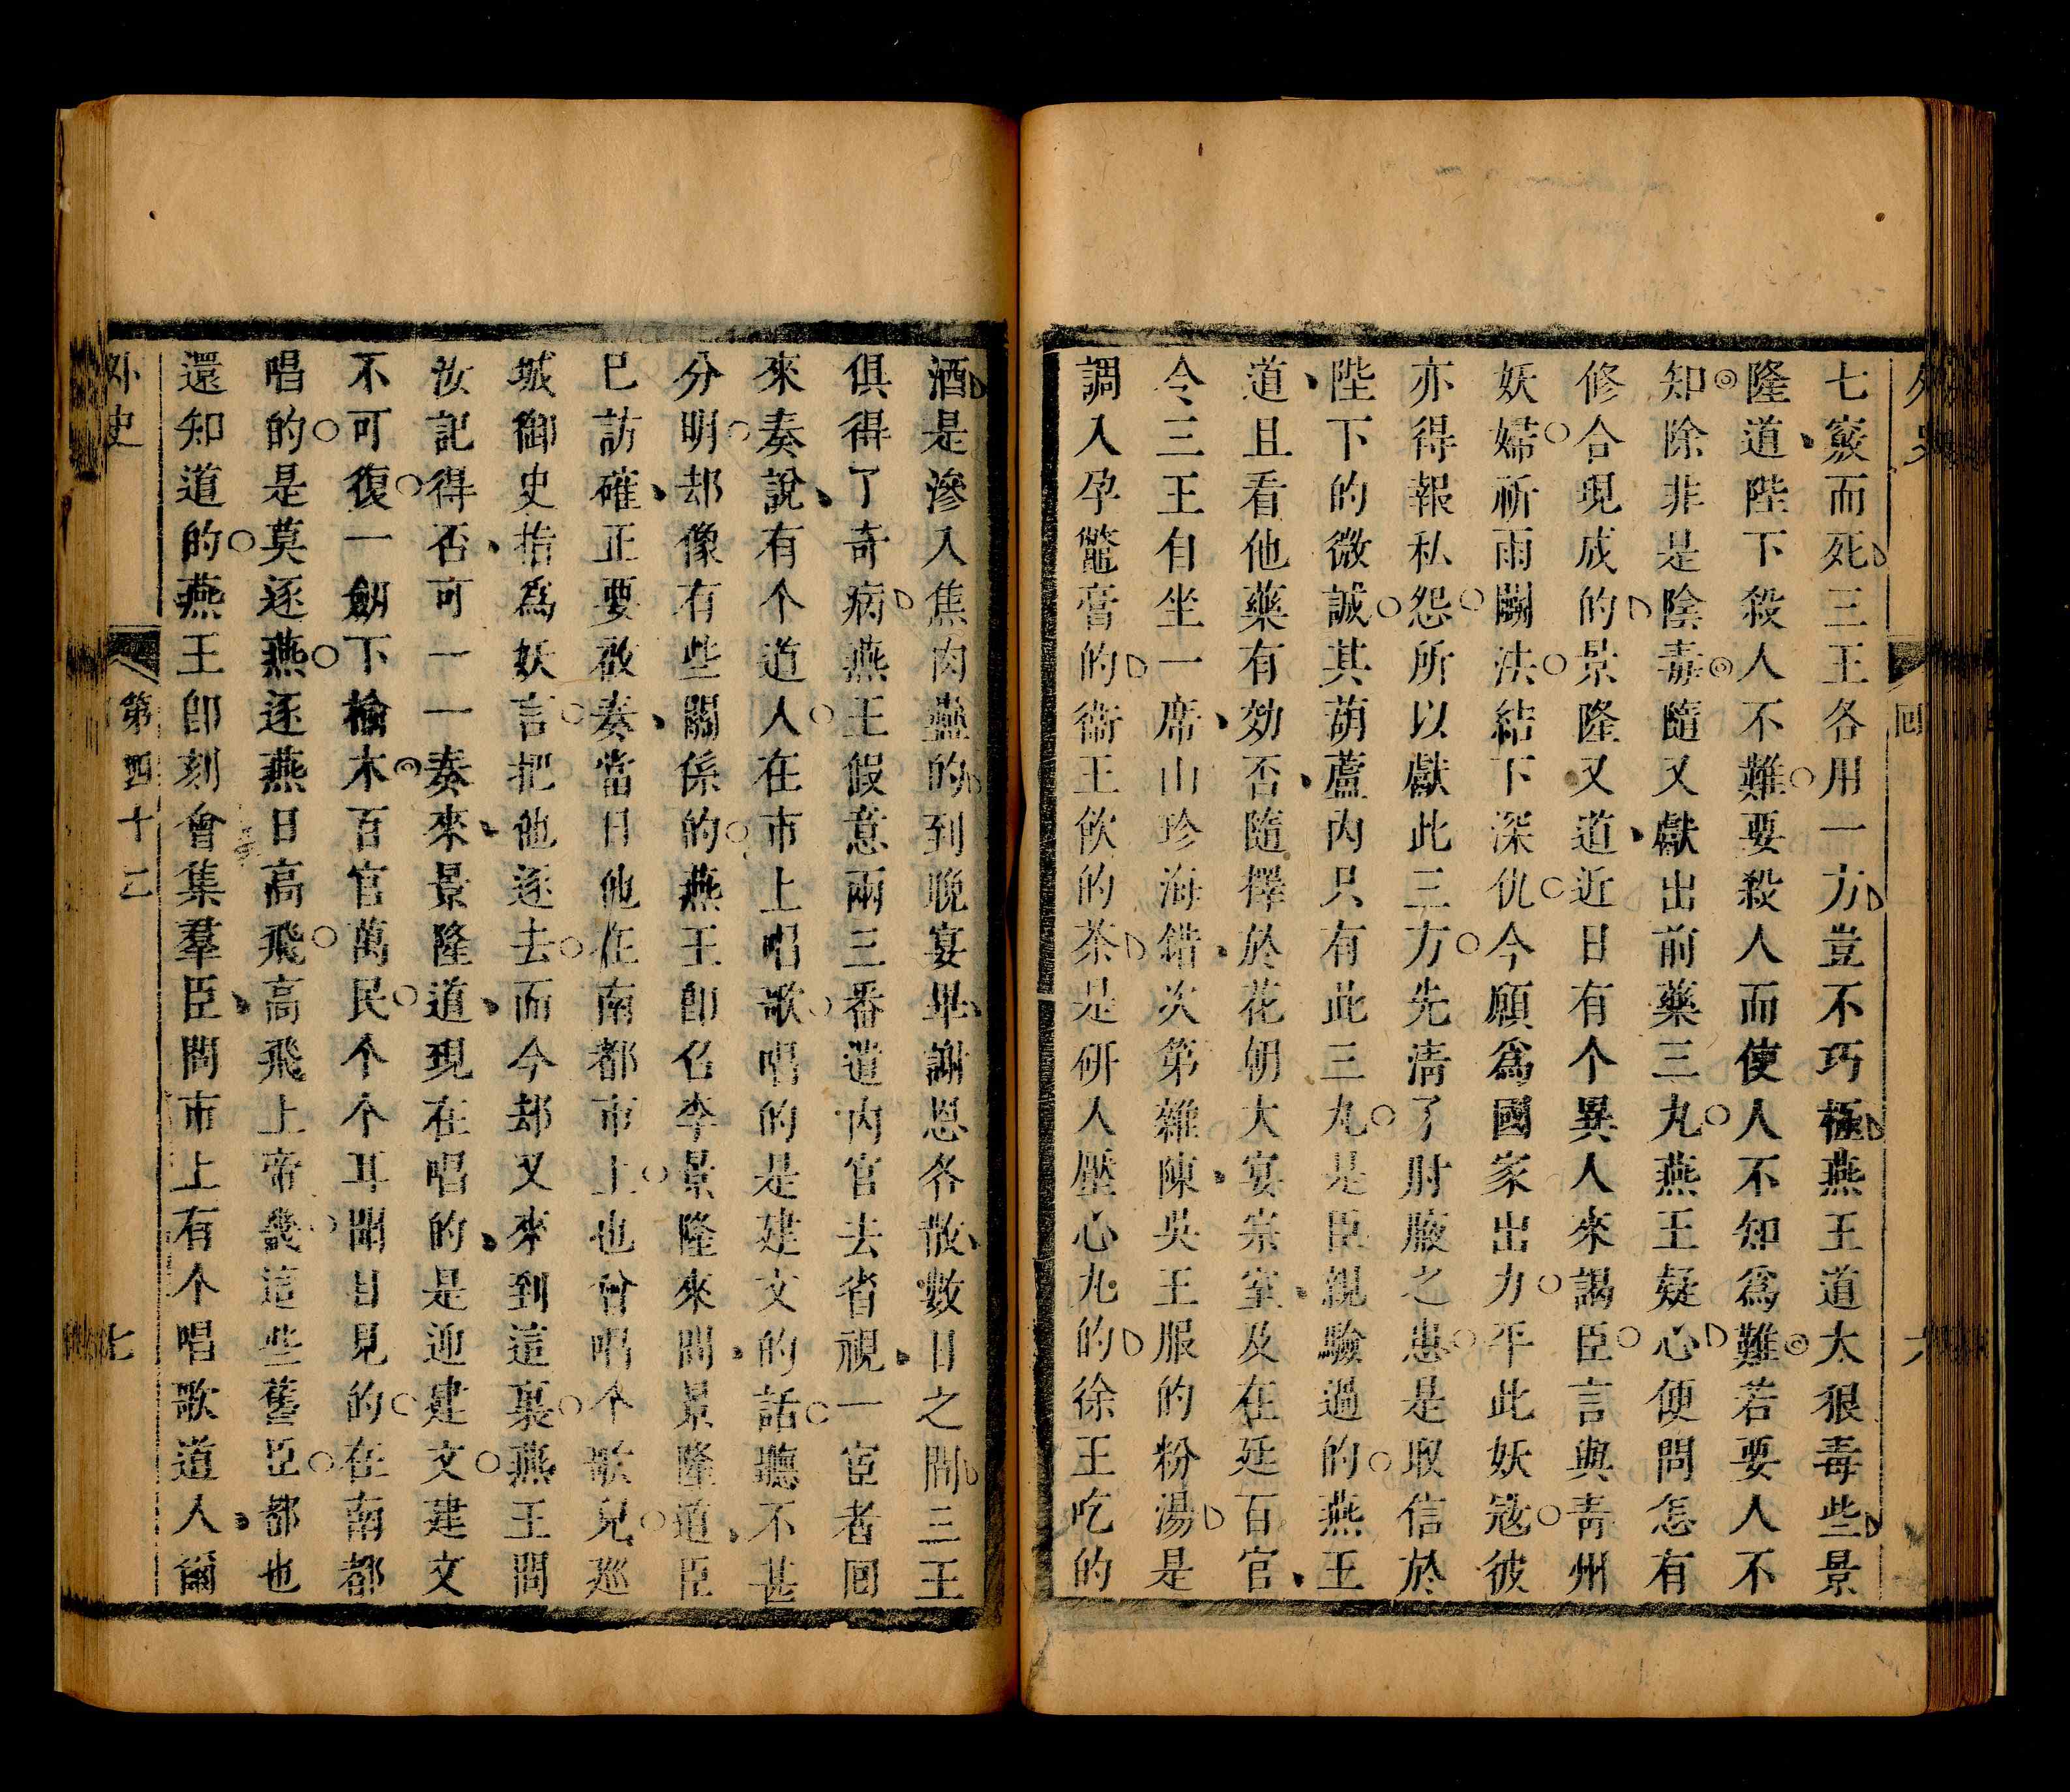 外史
回
六
七竅而死三王各用一方豈不巧極燕王道太狠毒些景
隆道陛下殺人不難要殺人而使人不知爲難若要人不
知除非是陰毒隨又獻出前藥三丸燕王疑心便問怎有
修合現成的景隆又道近日有个異人來謁臣言與靑州
妖婦祈雨鬭法結下深仇今願爲國家出力平此妖寇彼
亦得報私怨所以獻此三方先淸了肘腋之患是取信於
陛下的微誠其葫蘆內只有此三丸是臣親驗過的燕王
道且看他藥有効否隨擇於花朝大宴宗室及在廷百官
令三王自坐一席山珍海錯次第雜陳吳王服的粉湯是
調入孕鼈膏的衞王飮的茶是硏人壓心丸的徐王吃的
酒是滲入焦肉蠱的到晚宴畢謝恩各散數日之間三王
俱得了奇病燕王假意兩三番遣內官去省視一宦者回
來奏說有个道人在市上唱歌唱的是建文的話聽不甚
分明却像有些關係的燕王卽召李景隆來問景隆道臣
已訪確正要啟奏當日他在南都市上也曾唱个歌兒巡
城御史指爲妖言把他逐去而今却又來到這裏燕王問
汝記得否可一一奏來景隆道現在唱的是迎建文建文
不可復一劒下榆木百官萬民个个耳聞目見的在南都
唱的是莫逐燕逐燕日高飛高飛上帝畿這些舊臣都也
還知道的燕王卽刻會集羣臣問市上有个唱歌道人爾
外史
第四十二
七